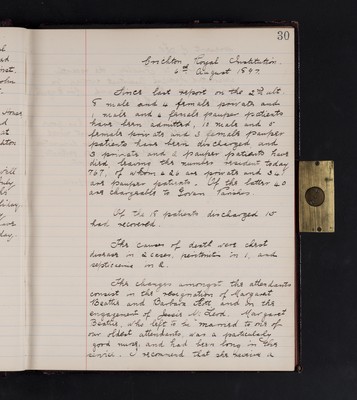 30
Crichton Royal Institution.
6th August 1897.
Since last report on the 2nd ult.
8 male and 4 female private and
1 male and 4 female pauper patients
have been admitted, 10 male and 5
female private and 3 female pauper
patients have been discharged and
3 private and 2 pauper patients have
died leaving the number resident today
767, of whom 426 are private and 341
are pauper patients. Of the latter 40
are chargeable to Govan Parish.
Of the 18 patients discharged 15
had recovered.
The causes of death were chest
disease in 2 cases, peritonitis in 1, and
septicaemia in 2.
The changes amongst the attendants
consist in the resignation of Margaret
Beattie and Barbara and in the
engagement of Jessie Mc. Margaret
Beattie, who left to be married to one of
our oldest attendants, was a particularly
good nurse, and had been long in the
service. I recommend that she receive a